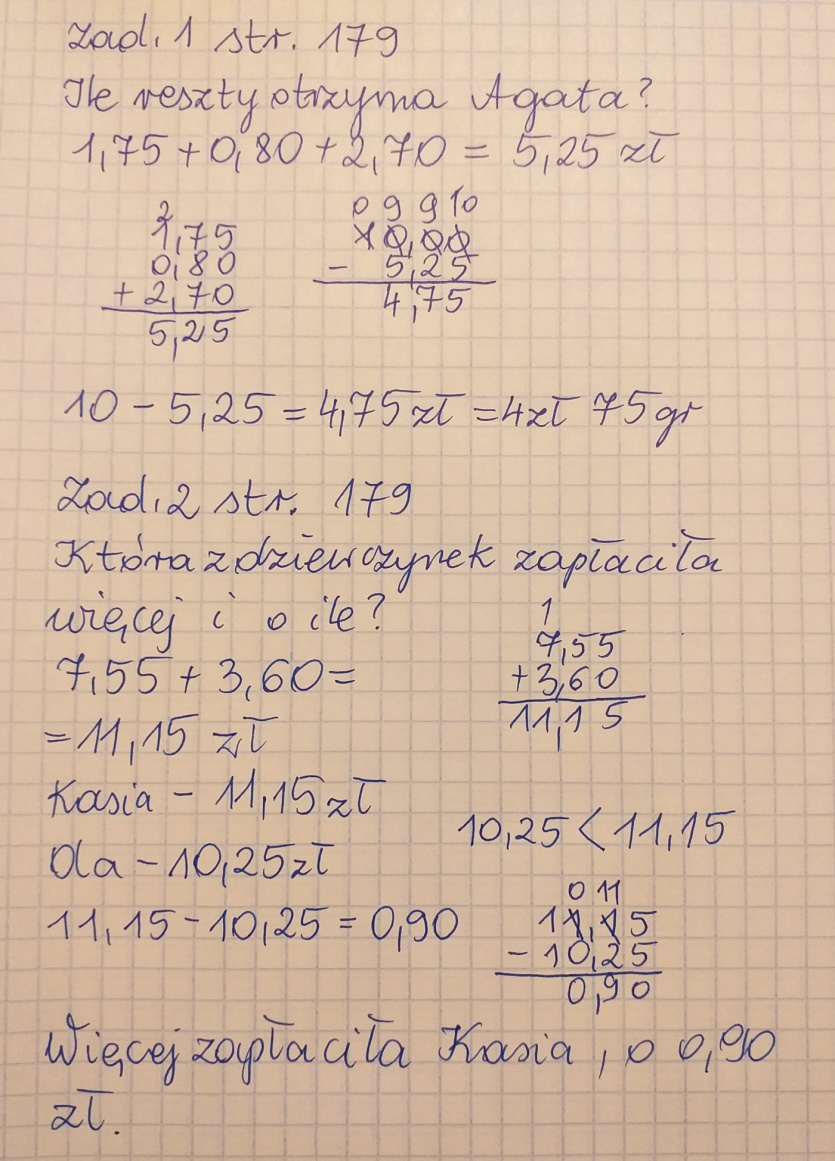 Zad. 1 str. 179
Ile reszty otrzyma Agata?
1,75 + 0,80 + 2,70 = 5,25 zł
2
1,75
0,80
+ 2,70
5,25
0 9 9 10
10,00
- 5,25
4,75
10 - 5,25 = 4,75 zł = 4 zł 75 gr
Zad. 2 str. 179
Która z dziewczynek zapłaciła
więcej i o ile?
7,55 + 3,60 =
= 11,15 zł
1
7,55
+ 3,60
11,15
Kasia - 11,15 zł
Ola - 10,25 zł
10,25 < 11,15
11,15 - 10,25 = 0,90
0 11
11,15
- 10,25
0,90
Więcej zapłaciła Kasia, o 0,90
zł.